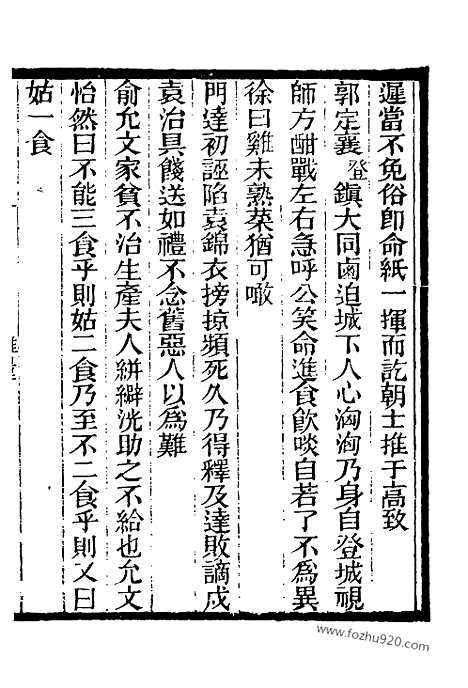 遲當不免俗卽命紙一揮而訖朝士推于高致
郭定襄登鎭大同鹵迫城下人心洶洶乃身自登城視
師方酣戰左右急呼公笑命進食飮啖自若了不爲異
徐曰雞未熟菜猶可噉
門達初誣陷袁錦衣搒掠頻死久乃得釋及達敗謫戍
袁治具餞送如禮不念舊惡人以爲難
俞允文家貧不治生產夫人絣澼洸助之不給也允文
怡然曰不能三食乎則姑二食乃至不二食乎則又曰
姑一食
www.fozhu920.com